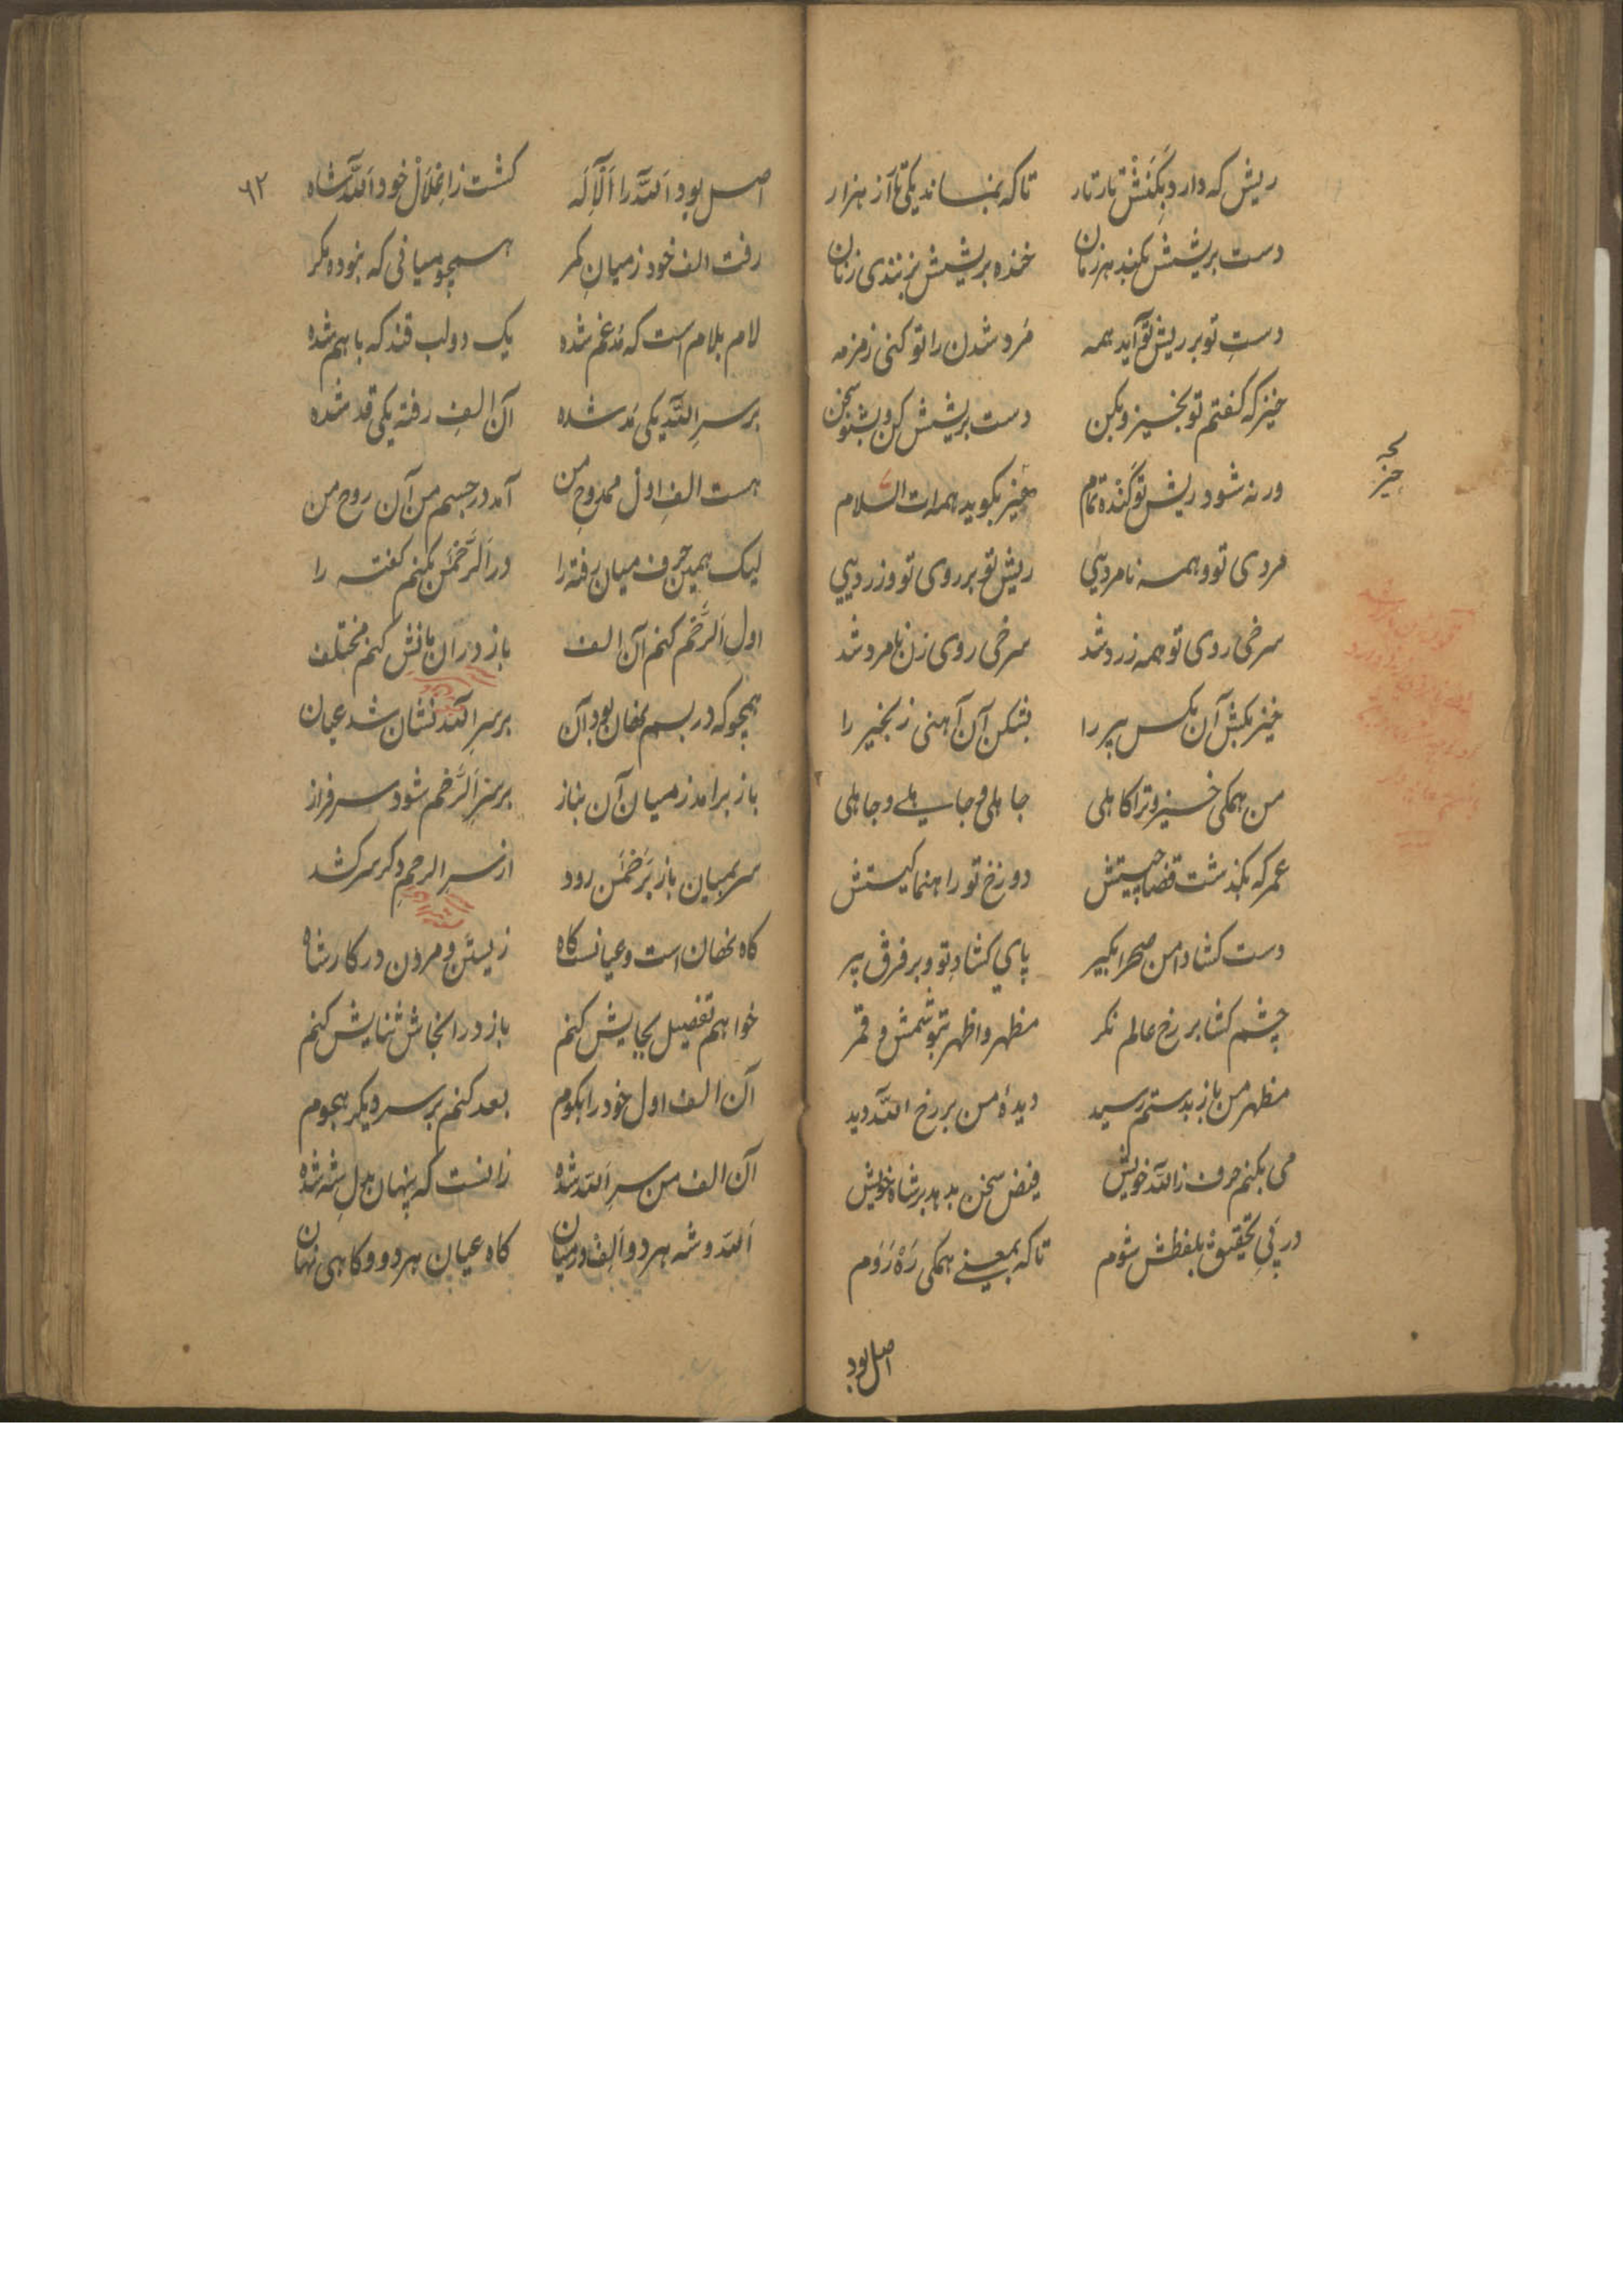 ریش که دارد بکنش تار تار تا که نماند یکی تا از هزار
دست بریشش بکند هر زمان خنده بریشش بزندی زنان
دست تو بر ریش تو آید همه مرد شدن را تو کنی زمزمه
خیز که گفتم تو بخیز و بکن دست بریشش کن و بشنو سخن
ورنه شود ریش تو گنده تمام خیز بگوید همه‌ات السلام
مردی تو و همه نامردیی ریش تو بر روی تو و زردیی
سرخی روی تو همه زرد شد سرخی روی زن نامرد شد
خیز بکش آن مکس پیر را بشکن آن آهنی زنجیر را
من همگی خیز و ترا کاهلی جاهلی و جاهلی و جاهلی
عمر که بگذشت قضا چیستش دوزخ تو راهنما کیستش
دست کشا دامن صحرا بگیر پای کشاد تو و بر فرق پیر
چشم کشا بر رخ عالم نگر مظهر و اظهر بتو شمش و قمر
مظهر من باز بدستم رسید دیدهٔ من بر رخ الله دید
می بکنم حرف ز الله خویش فیض سخن بدهد بر شاه خویش
در پی تحقیق بلفظش شوم تا که بمعنی همگی ره روم
خیز
اصل بود
۶۲
اصل بود الله را الاله کشت ز اغلال خود الله شاه
رفت الف خود ز میان کمر همچو میانی که نبوده مگر
لام بلام است که مدغم شده یک دو لب قند که با هم شده
بر سر الله یکی مد شده آن الف رفته یکی قد شده
هست الف اول ممدوح من آمد در جسم من آن روح من
لیک همین حرف میان رفته را در الرحمن بکنم گفته را
اول الرحم کنم آن الف باز در آن مانش کنم مختلف
همچو که در بسم نهان بود آن بر سر الله نشان شد عیان
باز برامد ز میان آن بناز بر سر الرحم شود سرفراز
سر بمیان باز برحمن رود از سر الرحم دگر سر کشد
گاه نهان است و عیانست گاه زیستن و مردن در کار شاه
خواهم تفصیل بجایش کنم باز در انجاش ثنایش کنم
آن الف اول خود را بگوم بعد کنم بر سر دیگر هجوم
آن الف من سر الله شده زانست که پنهان بدل شه شده
الله و شه هر دو الف در میان گاه عیان هر دو و گاهی نهان